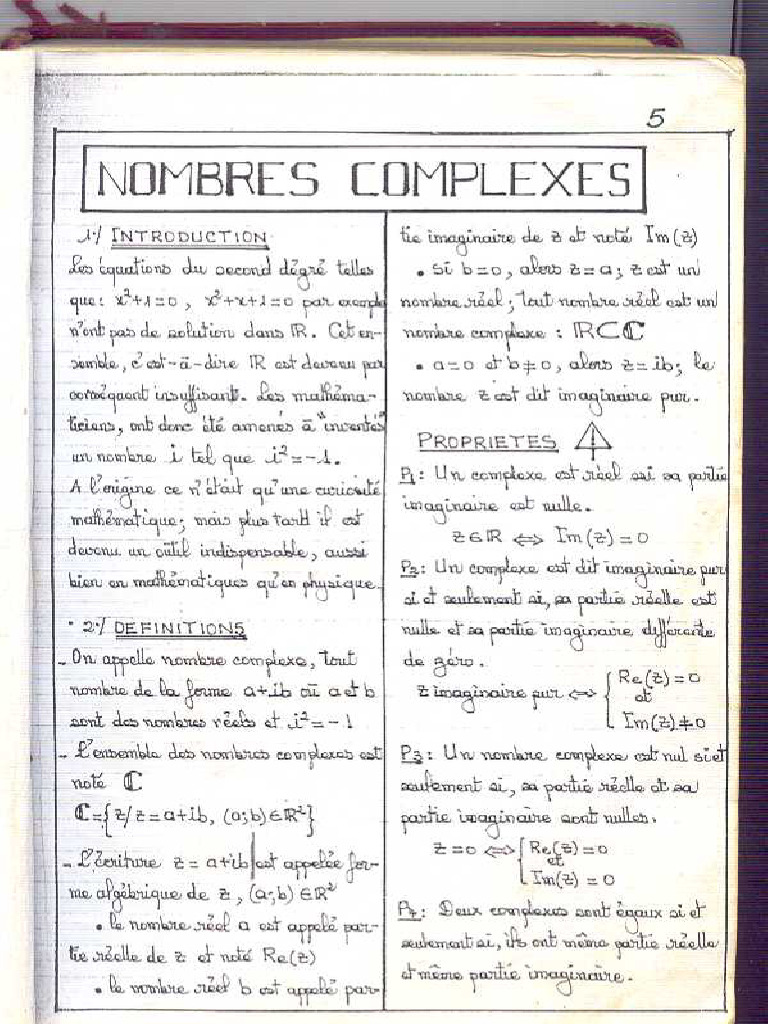 5
NOMBRES COMPLEXES
1°/ INTRODUCTION
Les équations du second dégré telles
que : x²+1=0 , x²+x+1=0 par exemple
n'ont pas de solution dans ℝ. Cet en-
semble, c'est-à-dire ℝ est devenu par
conséquent insuffisant. Les mathéma-
ticiens, ont donc été amenés à "inventés"
un nombre i tel que i²=-1.
A l'origine ce n'était qu'une curiosité
mathématique; mais plus tard il est
devenu un outil indispensable, aussi
bien en mathématiques qu'en physique.
2°/ DEFINITIONS
- On appelle nombre complexe, tout
nombre de la forme a+ib où a et b
sont des nombres réels et i²=-1
- L'ensemble des nombres complexes est
noté ℂ
ℂ={z/z=a+ib, (a;b)∈ℝ²}
- L'écriture z=a+ib est appelée for-
me algébrique de z, (a;b)∈ℝ²
• le nombre réel a est appelé par-
tie réelle de z et noté Re(z)
• le nombre réel b est appelé par-
tie imaginaire de z et noté Im(z)
• si b=0, alors z=a; z est un
nombre réel; tout nombre réel est un
nombre complexe : ℝ⊂ℂ
• a=0 et b≠0, alors z=ib; le
nombre z est dit imaginaire pur.
PROPRIETES
P1: Un complexe est réel ssi sa partie
imaginaire est nulle.
z∈ℝ ⇔ Im(z)=0
P2: Un complexe est dit imaginaire pur
si et seulement si, sa partie réelle est
nulle et sa partie imaginaire différente
de zéro.
z imaginaire pur ⇔ { Re(z)=0
et
Im(z)≠0
P3: Un nombre complexe est nul si et
seulement si, sa partie réelle et sa
partie imaginaire sont nulles.
z=0 ⇔ { Re(z)=0
et
Im(z)=0
P4: Deux complexes sont égaux si et
seulement si, ils ont même partie réelle
et même partie imaginaire.